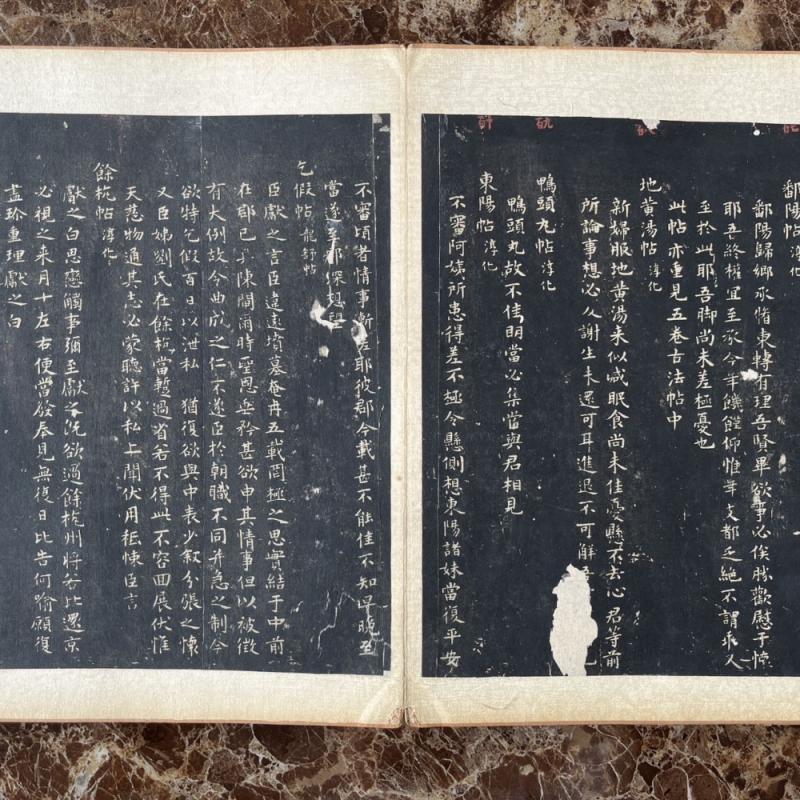 鄱陽帖 淳化
鄱陽歸鄉承脩東轉有理吾賢畢欲事必俟勝歡慰于懷
耶吾終權宜至承今年饑饉仰惟年支都乏絶不謂乖又
至於此耶吾脚尚未差極憂也
此帖亦重見五卷古法帖中
地黄湯帖 淳化
新婦服地黄湯来似减眠食尚未佳憂懸不去心君等前
所論事想必及謝生未還可耳進退不可解
鴨頭丸帖 淳化
鴨頭丸故不佳明當必集當與君相見
東陽帖 淳化
不審阿姨所患得差不極令懸惻想東陽諸妹當復平安
不審頃者情事漸差耶彼郡今載甚不能佳不知早晚至
當遂至都深想望
乞假帖 龍舒帖
臣獻之言臣違遠墳墓奄冉五載罔極之思實結于中前
在郡已陳聞爾時聖恩垂矜甚欲申其情事但以被徵
有大例故令曲成之仁不遂臣於朝職不同并急之制今
欲特乞假百日以泄私 猶復欲與中表少叙分張之懷
又臣姊劉氏在餘杭當暫過省若不得此不容回展伏惟
天慈物通其志必蒙聽許以私上聞伏用秪悚臣言
餘杭帖 淳化
獻之白思戀觸事彌至獻之既欲過餘杭州將若比還京
必視之来月十左右便當發奉見無復日比告何喻願復
盡珍重理獻之白